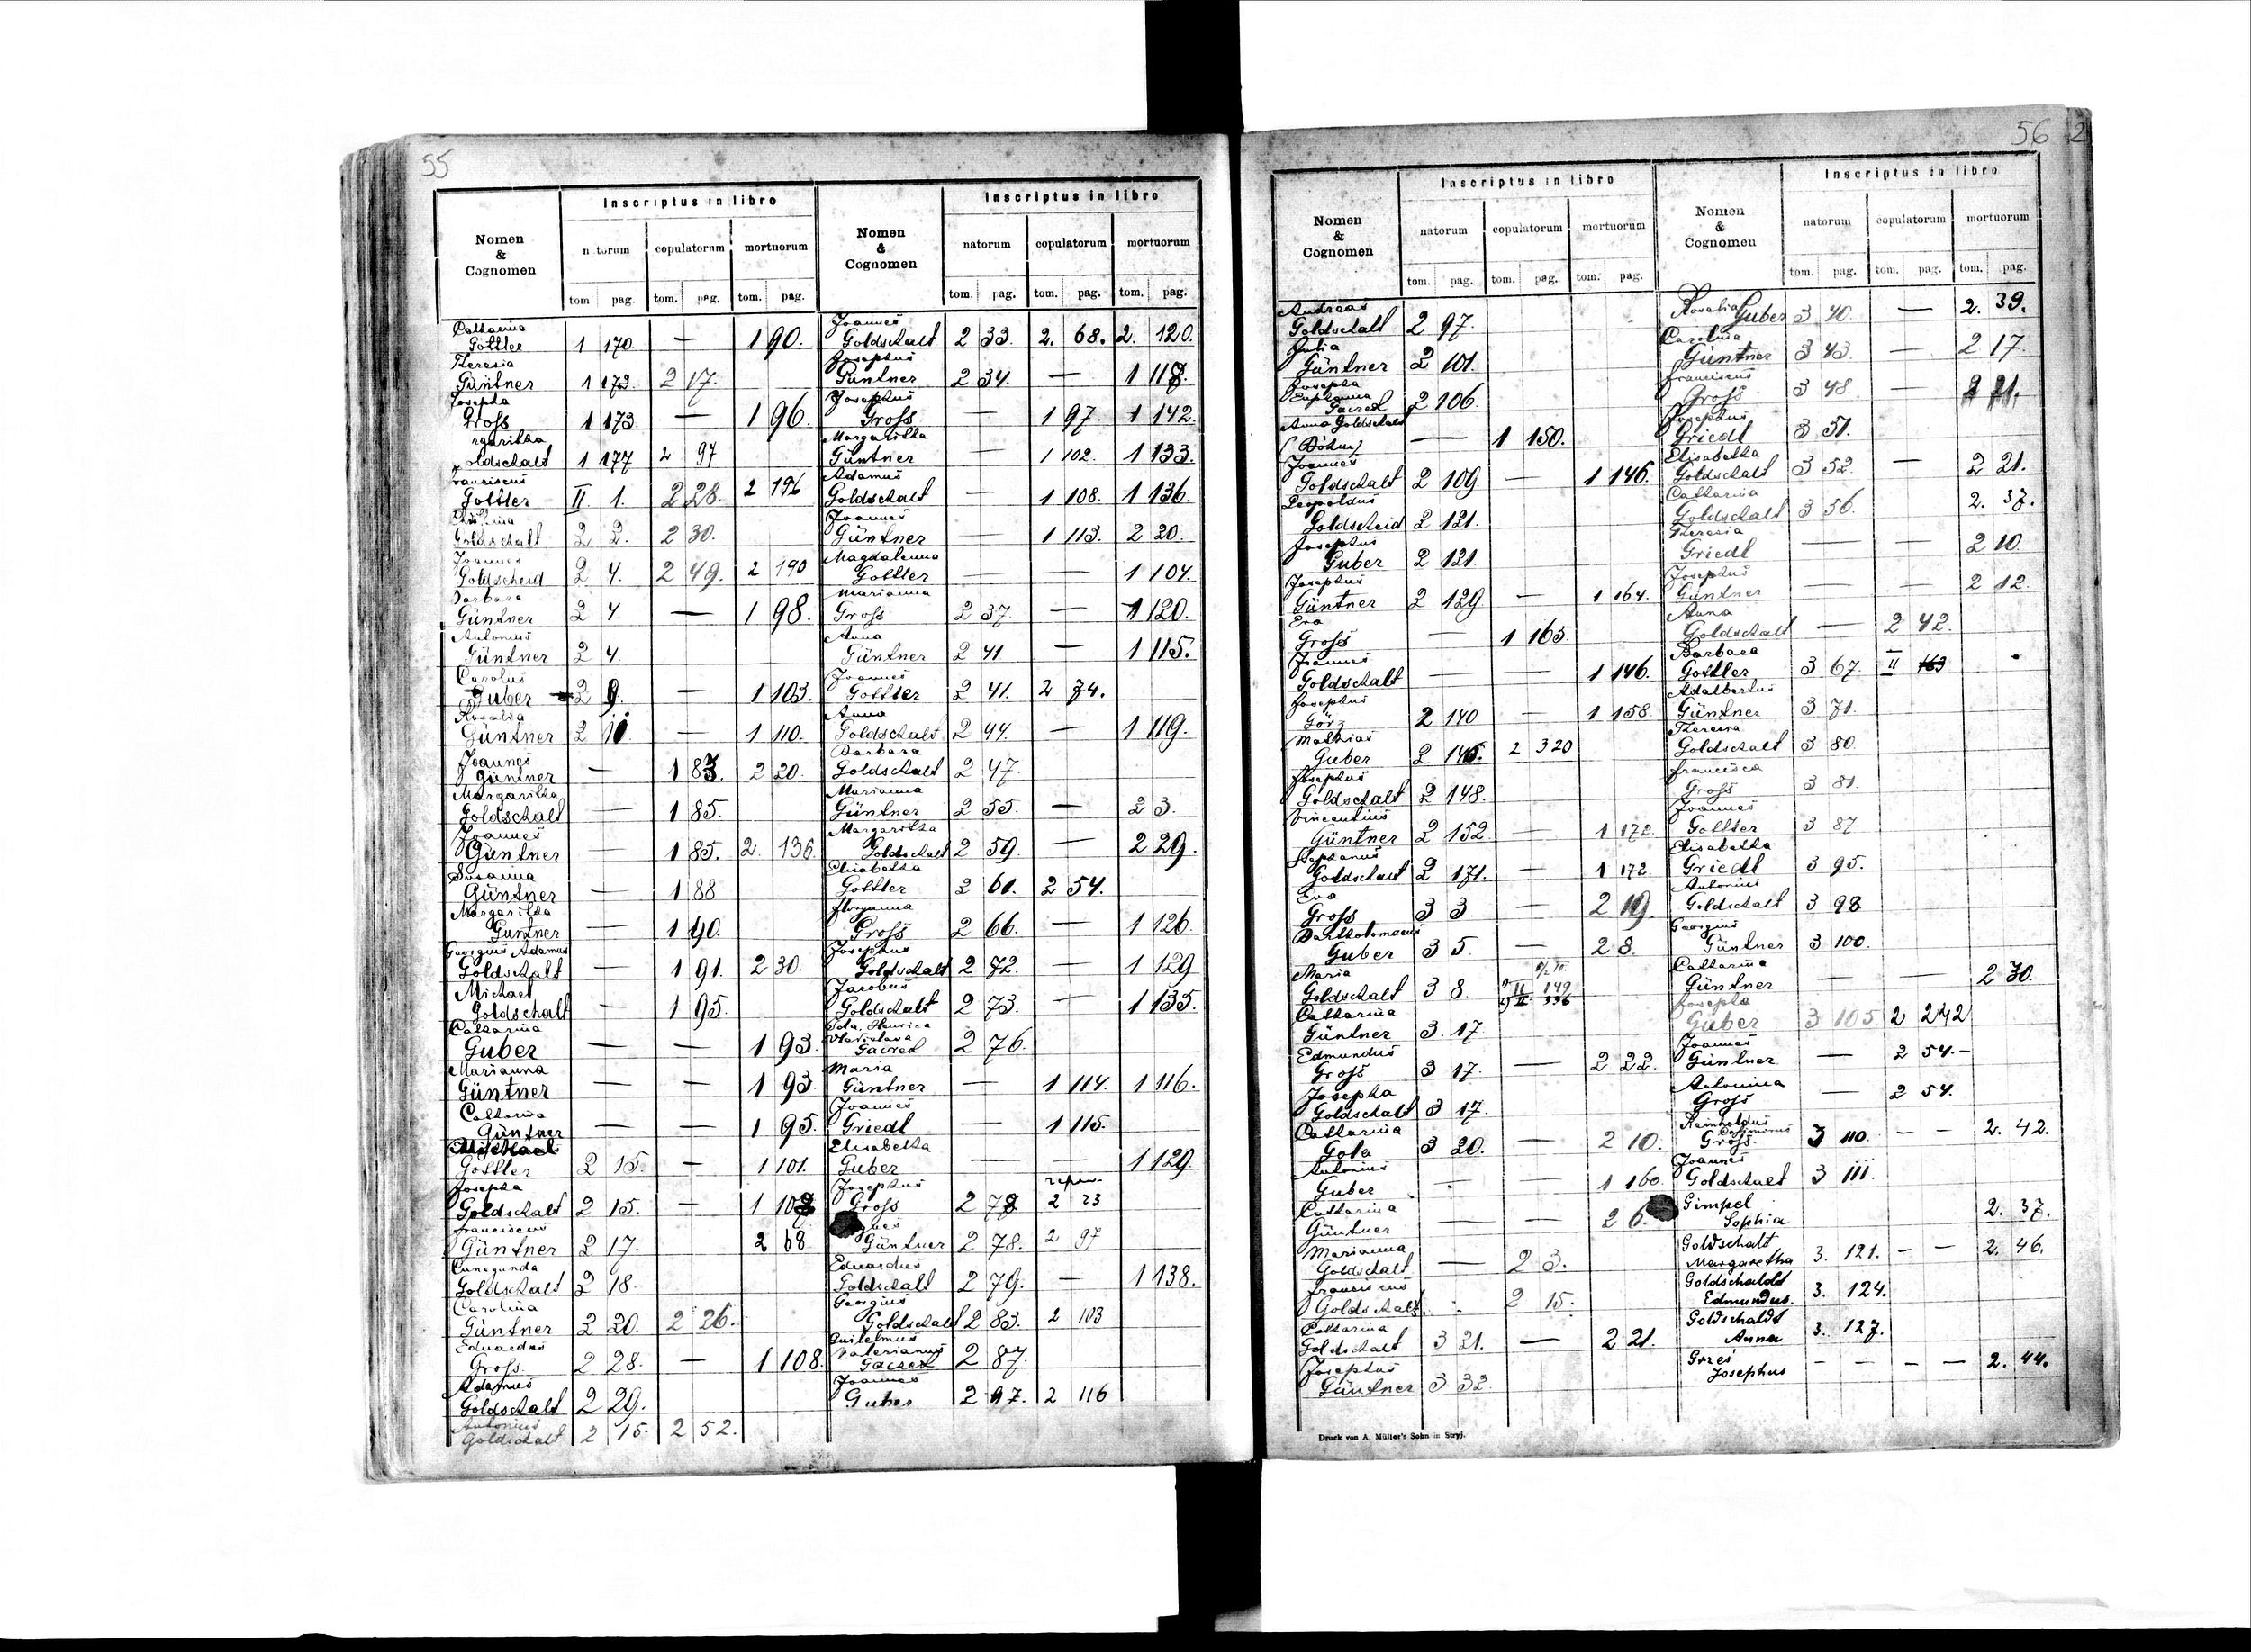 55
Inscriptus in libro
Nomen & Cognomen
natorum copulatorum mortuorum
tom pag. tom. pag. tom. pag.
Catharina Gottler 1 170. — 1 90.
Theresia Güntner 1 172. 2 17.
Josepha Gross 1 173 — 1 96.
rgaritha oldschalt 1 177 2 97
Franciscus Gottler II. 1. 2 28. 2 196
Christina Goldschalt 2 2. 2 30.
Joannes Goldscheid 2 4. 2 49. 2 190
Barbara Güntner 2 4. — 1 98.
Antonius Güntner 2 4.
Carolus Guber 2 9. — 1 103.
Rosalia Güntner 2 10. — 1 110.
Joannes Güntner — 1 83. 2 20.
Margaritha Goldschalt — 1 85.
Joannes Güntner — 1 85. 2. 136.
Susanna Güntner — 1 88
Margaritha Guntner — 1 90.
Georgius Adamus Goldschalt — 1 91. 2 30.
Michael Goldschalt — 1 95.
Catharina Guber — — 1 93.
Marianna Güntner — — 1 93.
Catharina Güntner — — 1 95.
Michael Gottler 2 15. — 1 101.
Josepha Goldschalt 2 15. — 1 102
Franciscus Güntner 2 17. 2 68
Cunegunda Goldschalt 2 18.
Carolina Güntner 2 20. 2 26.
Eduardus Gross 2 28. — 1 108.
Adamus Goldschalt 2 29.
Antonius Goldschalt 2 15. 2 52.
Inscriptus in libro
Nomen & Cognomen
natorum copulatorum mortuorum
tom. pag. tom. pag. tom. pag.
Joannes Goldschalt 2 33. 2. 68. 2. 120.
Josephus Güntner 2 34. — 1 118.
Josephus Gross — 1 97. 1 142.
Margaritha Güntner — 1 102. 1 133.
Adamus Goldschalt — 1 108. 1 136.
Joannes Güntner — 1 113. 2 20.
Magdalenna Gottler — — 1 104.
Marianna Gross 2 37. — 1 120.
Anna Güntner 2 41 — 1 115.
Joannes Gottler 2 41. 2 74.
Anna Goldschalt 2 44. — 1 119.
Barbara Goldschalt 2 47
Marianna Güntner 2 55. — 2 3.
Margaritha Goldschalt 2 59. — 2 29.
Elisabetha Gottler 2 61. 2 54.
Gross 2 66. — 1 126.
Josephus Goldschalt 2 72. — 1 129
Jacobus Goldschalt 2 73. — 1 135.
2 76.
Maria Güntner — 1 114. 1 116.
Joannes Griedl — 1 115.
Elisabetha Guber — — 1 129.
Josephus Gross 2 78 2 23
Güntner 2 78. 2 97
Eduardus Goldschalt 2 79. — 1 138.
Georgius Goldschalt 2 83. 2 103
Guilelmus Valerianus 2 87.
Joannes Guber 2 97. 2 116
56 2
Inscriptus in libro
Nomen & Cognomen
natorum copulatorum mortuorum
tom. pag. tom. pag. tom. pag.
Andreas Goldschalt 2 97.
Julia Güntner 2 101.
Josepha 2 106.
Anna Goldschalt (Böhm) — 1 150.
Joannes Goldschalt 2 109 — 1 146.
Leopoldus Goldscheid 2 121.
Josephus Guber 2 121.
Josephus Güntner 2 129 — 1 164.
Eva Gross — 1 165.
Joannes Goldschalt — — 1 146.
Josephus Görz 2 140 — 1 158.
Mathias Guber 2 145. 2 320
Josephus Goldschalt 2 148.
Vincentius Güntner 2 152 — 1 172.
Stephanus Goldschalt 2 171. — 1 172.
Eva Gross 3 3. — 2 19.
Bartholomaeus Guber 3 5. — 2 8.
Maria Goldschalt 3 8. II 149 II 336
Catharina Güntner 3. 17.
Edmundus Gross 3 17. — 2 22.
Josepha Goldschalt 3 17.
Catharina Gola 3 20. — 2 10.
Antonius Guber — — 1 160.
Catharina Güntner — — 2 6.
Marianna Goldschalt — 2 3.
Franciscus Goldschalt 2 15.
Catharina Goldschalt 3 21. — 2 21.
Josephus Güntner 3 32.
Druck von A. Müller's Sohn in Stryj.
Inscriptus in libro
Nomen & Cognomen
natorum copulatorum mortuorum
tom. pag. tom. pag. tom. pag.
Rosalia Guber 3 40. — 2. 39.
Carolina Güntner 3 43. — 2 17.
Franciscus Gross 3 48. — 2 21.
Josephus Griedl 3 51.
Elisabetha Goldschalt 3 52. — 2 21.
Catharina Goldschalt 3 56. 2. 37.
Theresia Griedl — — 2 10.
Josephus Güntner — — 2 12.
Anna Goldschalt — 2 42.
Barbara Gottler 3 67. II 163
Adalbertus Güntner 3 71.
Theresia Goldschalt 3 80.
Francisca Gross 3 81.
Joannes Gottler 3 87
Elisabetha Griedl 3 95.
Antonius Goldschalt 3 98
Georgius Güntner 3 100.
Catharina Güntner — — 2 30.
Josepha Guber 3 105. 2 242
Joannes Güntner — 2 54.-
Antonina Gross — 2 54.
Reinholdus Casimirus Gross. 3 110. — — 2. 42.
Joannes Goldschalt 3 111.
Gimpel Sophia 2. 37.
Goldschalt Margaretha 3. 121. — — 2. 46.
Goldschaldt Edmundus. 3. 124.
Goldschaldt Anna 3. 127.
Grześ Josephus — — — — 2. 44.